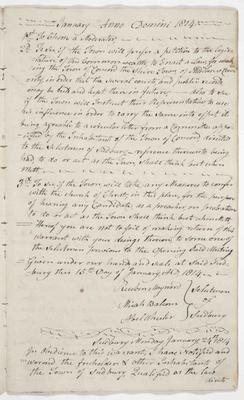 January Anno Domini 1814
1st To Chuse a Moderator
2d To See if the Town will prefer a petition to the Legis
lature of this Commonwealth to Enact a Law for making
the Town of Concord the Shire Town of Middlesex County
in order that the several courts and public records
may be held and kept there in future — also to see
if the Town will Instruct their Representative to use
his influence in order to carry the same into effect it
being agreeable to a circular letter from a Committee appo-
inted by the Inhabitants of the Town of Concord directed
to the Selectmen of Sudbury reference thereunto being
had to do or act as the Town Shall think put when
mett
3d To see if the Town will take any Measures to confer
with the church of Christ in this place, for the purpose
of hearing any Candidate, as a preacher on probation
to do or act as the Town Shall think but when Mett
Hereof you are not to fail of making return of this
warrant with your doings thereon to some one of
the selectmen previous to the opening said Meeting
Given under our hands and seals at said Sud
bury this 13th Day of January AD 1814
Reuben Maynard
Micah Balcom
Abel Wheeler
Selectmen
of
Sudbury
Sudbury Monday January 24th 1814
In Obedience to this warrant I have Notified and
warned the freeholders & other Inhabitants of
the Town of Sudbury Qualified as the law
directs